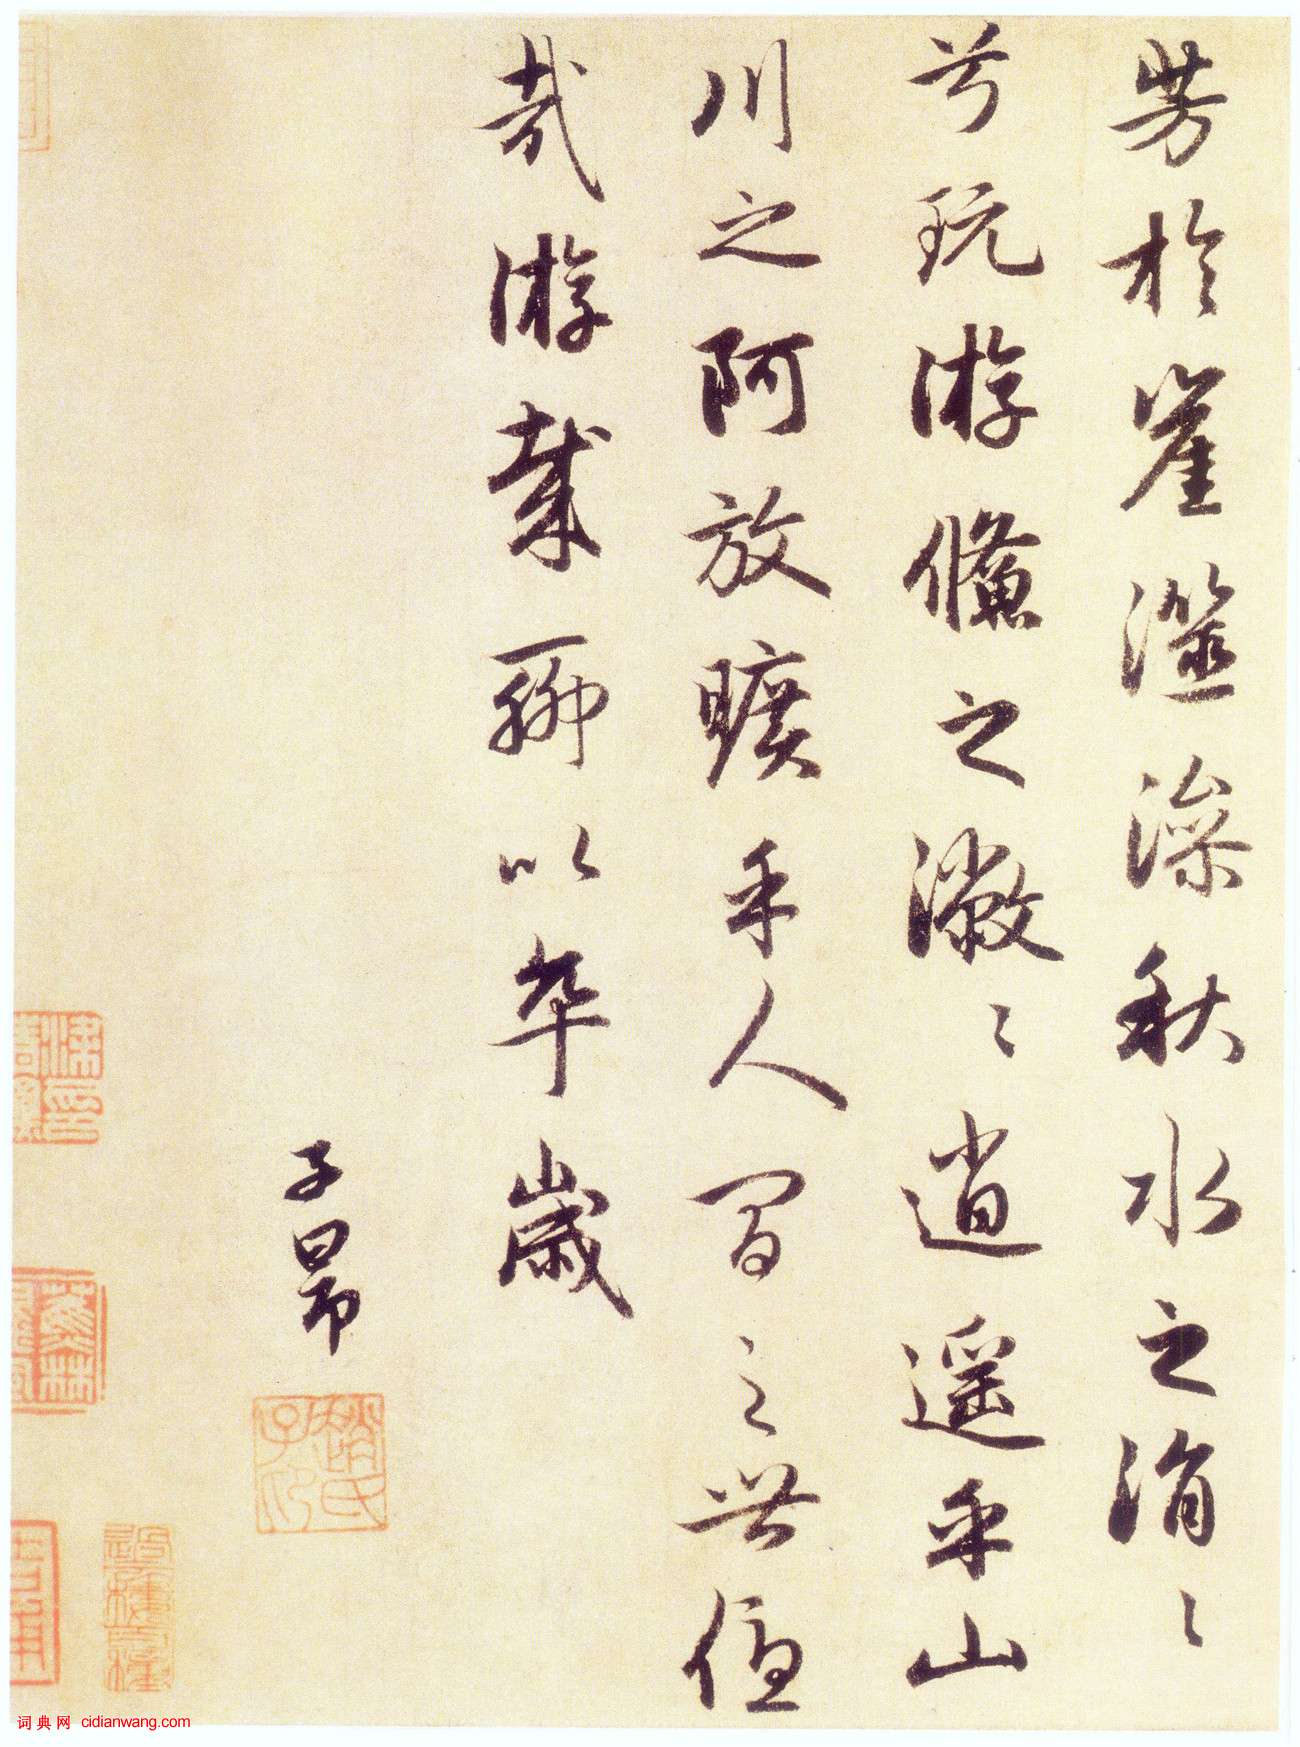 芳於崖澨澡秋水之涓〻
兮玩游儵之潎〻逍遥乎山
川之阿放曠乎人間之世優
哉游哉聊以卒歲
子昂
趙氏子昂
蕉林
词典网 cidianwang.com